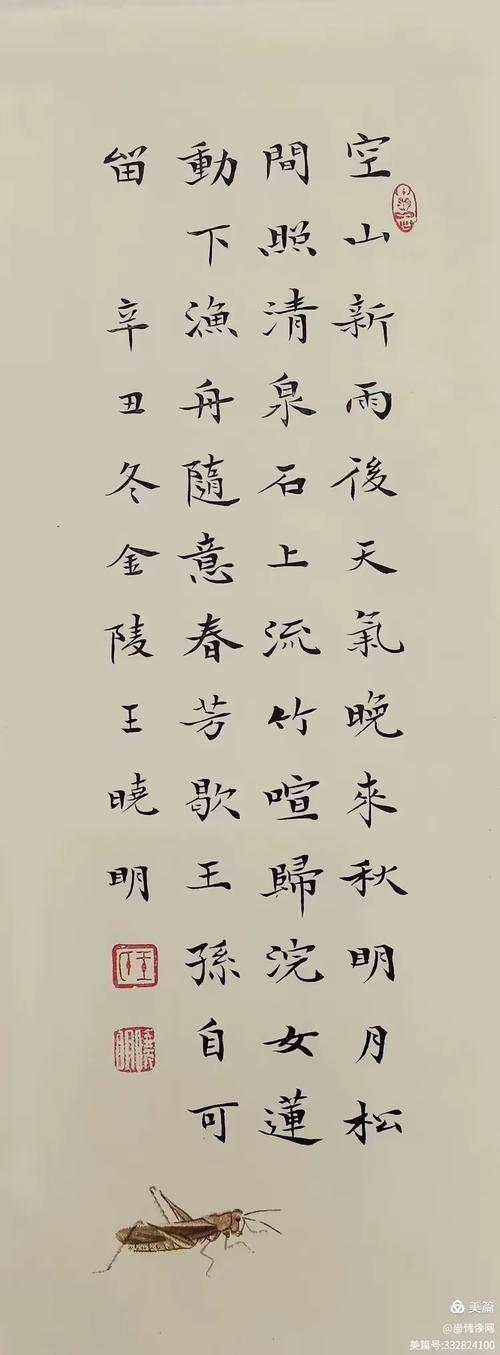 空山新雨後天氣晚來秋明月松
間照清泉石上流竹喧歸浣女蓮
動下漁舟隨意春芳歇王孫自可
留 辛丑冬金陵王曉明
美篇
美篇号:332824100